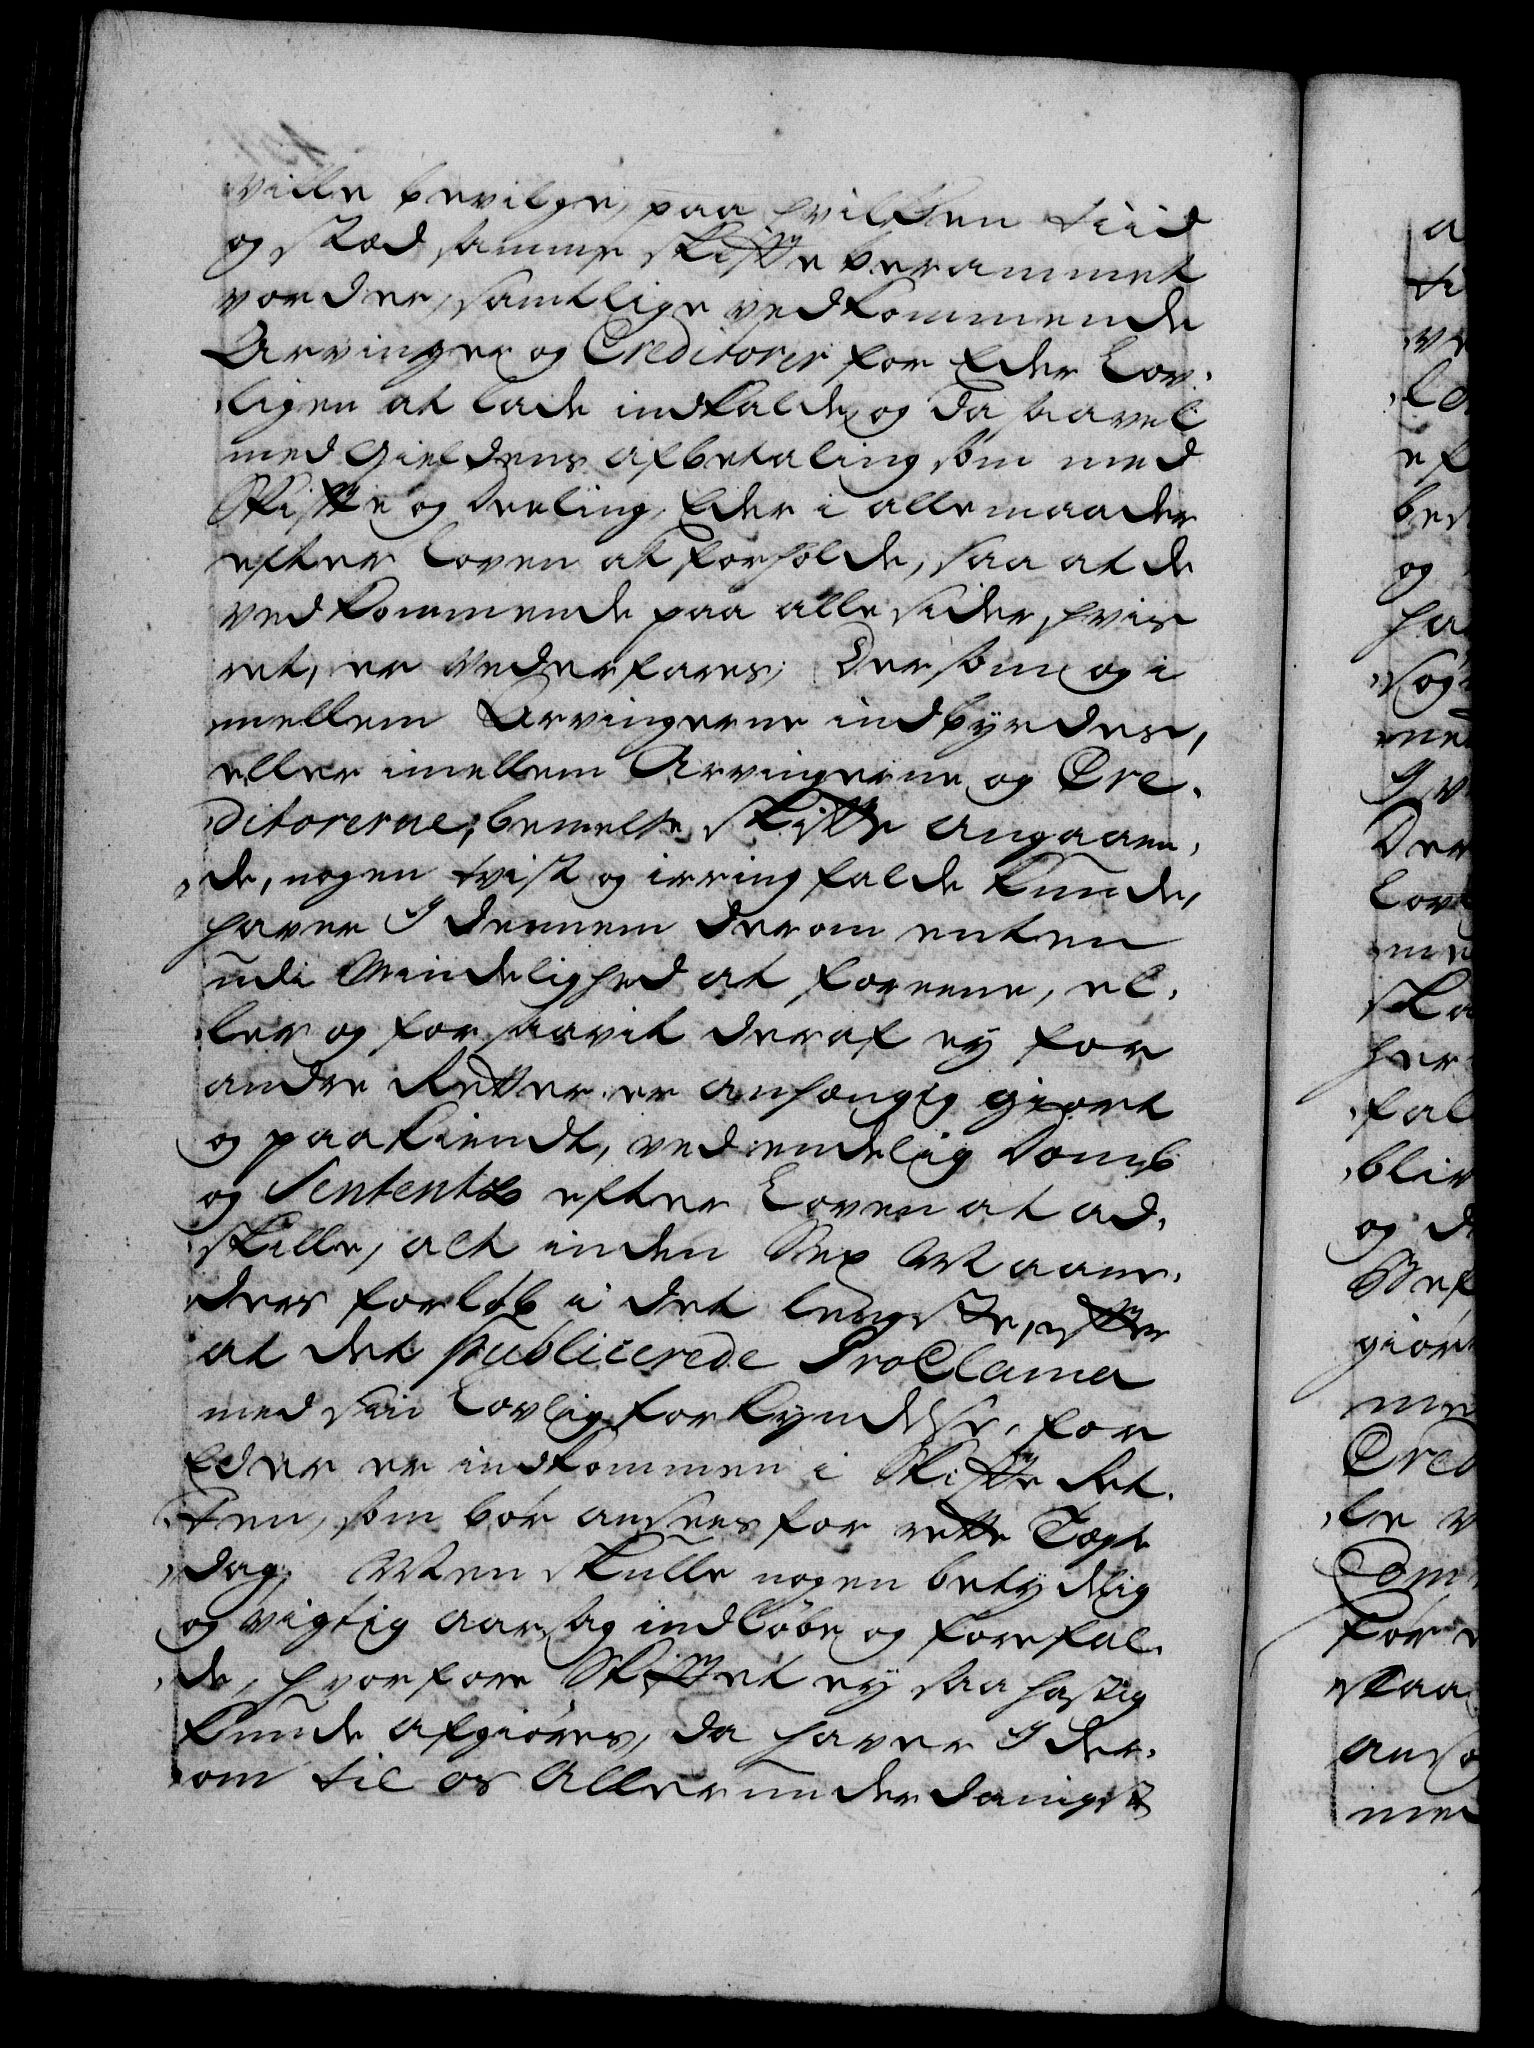 ville bevilge, paa hvilken tiid
og stæd samme skifte berammet
vorder, samtlige vedkommende
Arvinger og Creditorer for Eder Lov-
ligen at lade indkalde, og da saavel
med Gieldens afbetaling som med
Skifte og Deeling, Eder i alle maader
efter Loven at forholde, saa at de
vedkommende paa alle sider, hvis
ret, er vederfares; Dersom og i
mellem Arvingerne indbyrdes,
eller imellem Arvingerne og Cre-
ditorerne, bemelte skifte angaaen-
de, nogen tvist og irring falde kunde,
haver I dennem derom enten
udi Mindelighed at foreene, el-
ler og for saavit deraf ej for
andre Retter er anhængig giort
og paakiendt, ved endelig Domb
og Sententz efter Loven at ad-
skille, alt inden Sex Maane-
ders forløb i det lengste, efter
at det publicerede Proclama
med sin Lovlig forkyndelse, for
Eder er indkommen i Skifte Ret-
ten, som bør ansees for rette Tægte
dag; Men skulle nogen betydelig
og vigtig aarsag indløbe og forefal-
de, hvorfore Skiftet ej saa hastig
kunde afgiøres, da haver I der-
om til os Allerunderdanigst